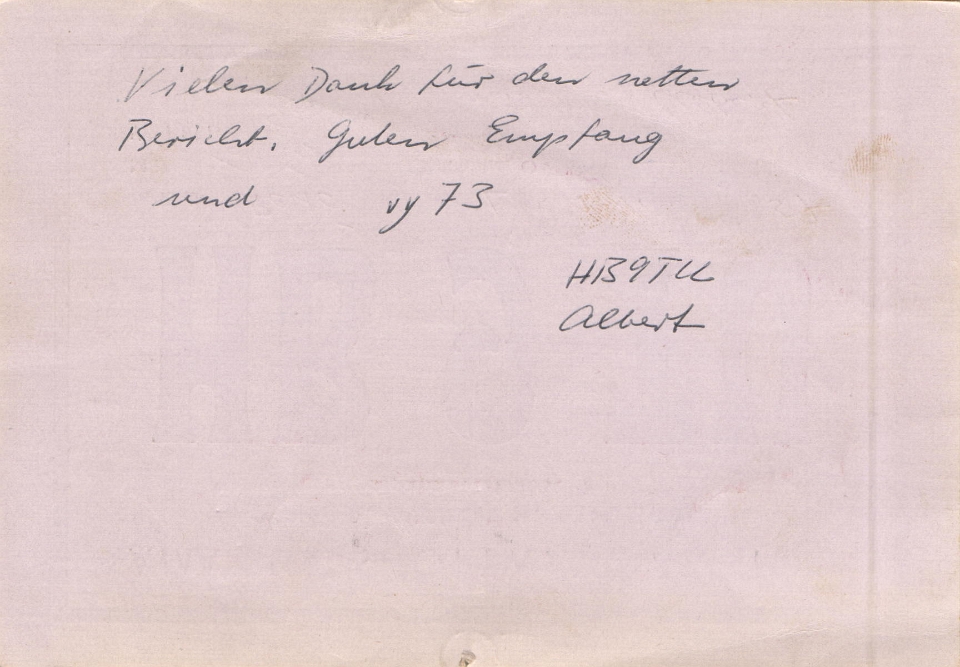 Vielen Dank für den netten
Bericht. Guten Empfang
und vy 73
HB9TU
Albert